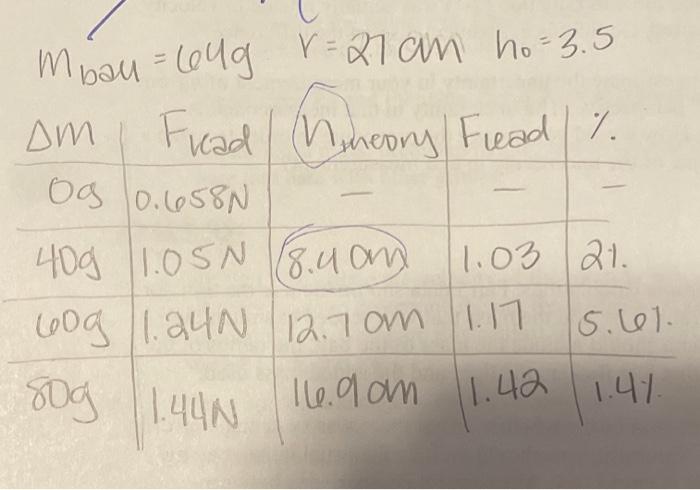 m ball = 64g r = 27 cm h₀ = 3.5
Δm Fread htheory Fread %
0g 0.658N — — —
40g 1.05N 8.4cm 1.03 2%
60g 1.24N 12.7cm 1.17 5.6%
80g 1.44N 16.9cm 1.42 1.4%